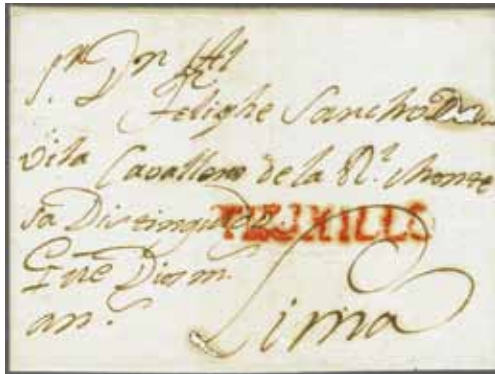 S.r D.n
Felighe Sancho Da
vila Cavallero de la R.l
ta Distinguida
TRUXILLO
Que Dios m.
an.s
Lima